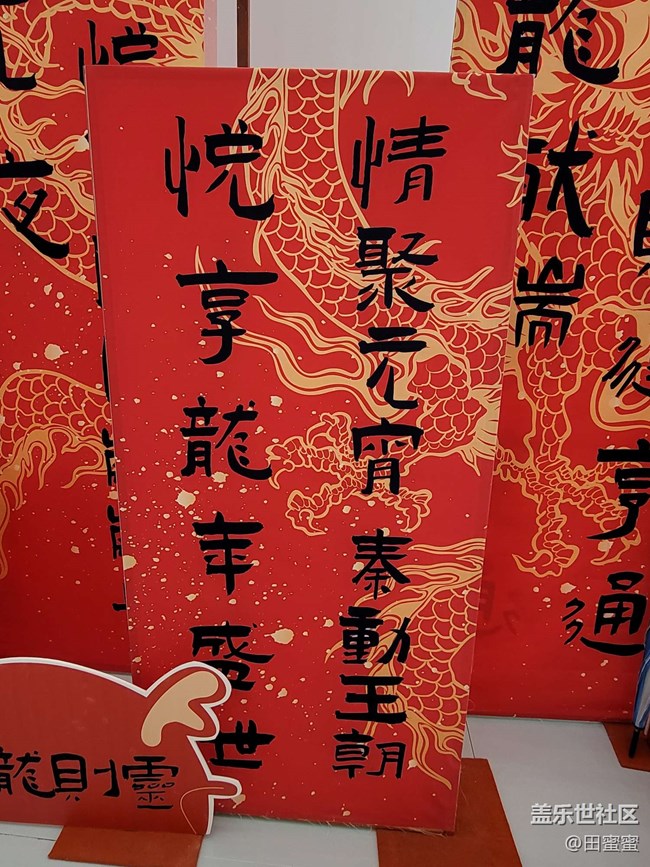 情聚元宵 秦動王朝
悦享龍年盛世
龍
獻
瑞
亨通
龍則靈
盖乐世社区
@田蜜蜜